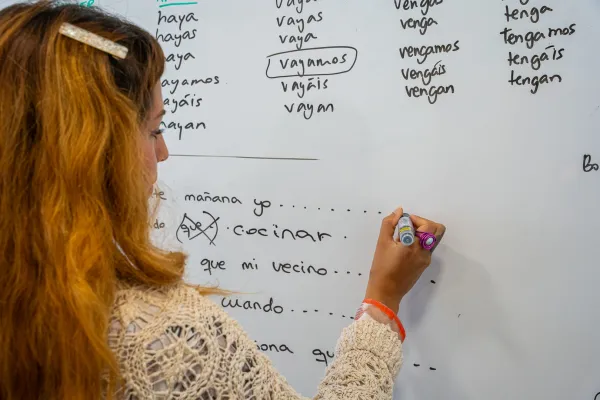 haya vaya venga tenga
hayas vayas venga tengamos
haya vaya vengamos tengáis
hayamos vayamos vengáis tengan
hayáis vayáis vengan
hayan vayan
Bo
mañana yo . . . . . .
que . cocinar .
que mi vecino . . . .
cuando . . . . . .
que